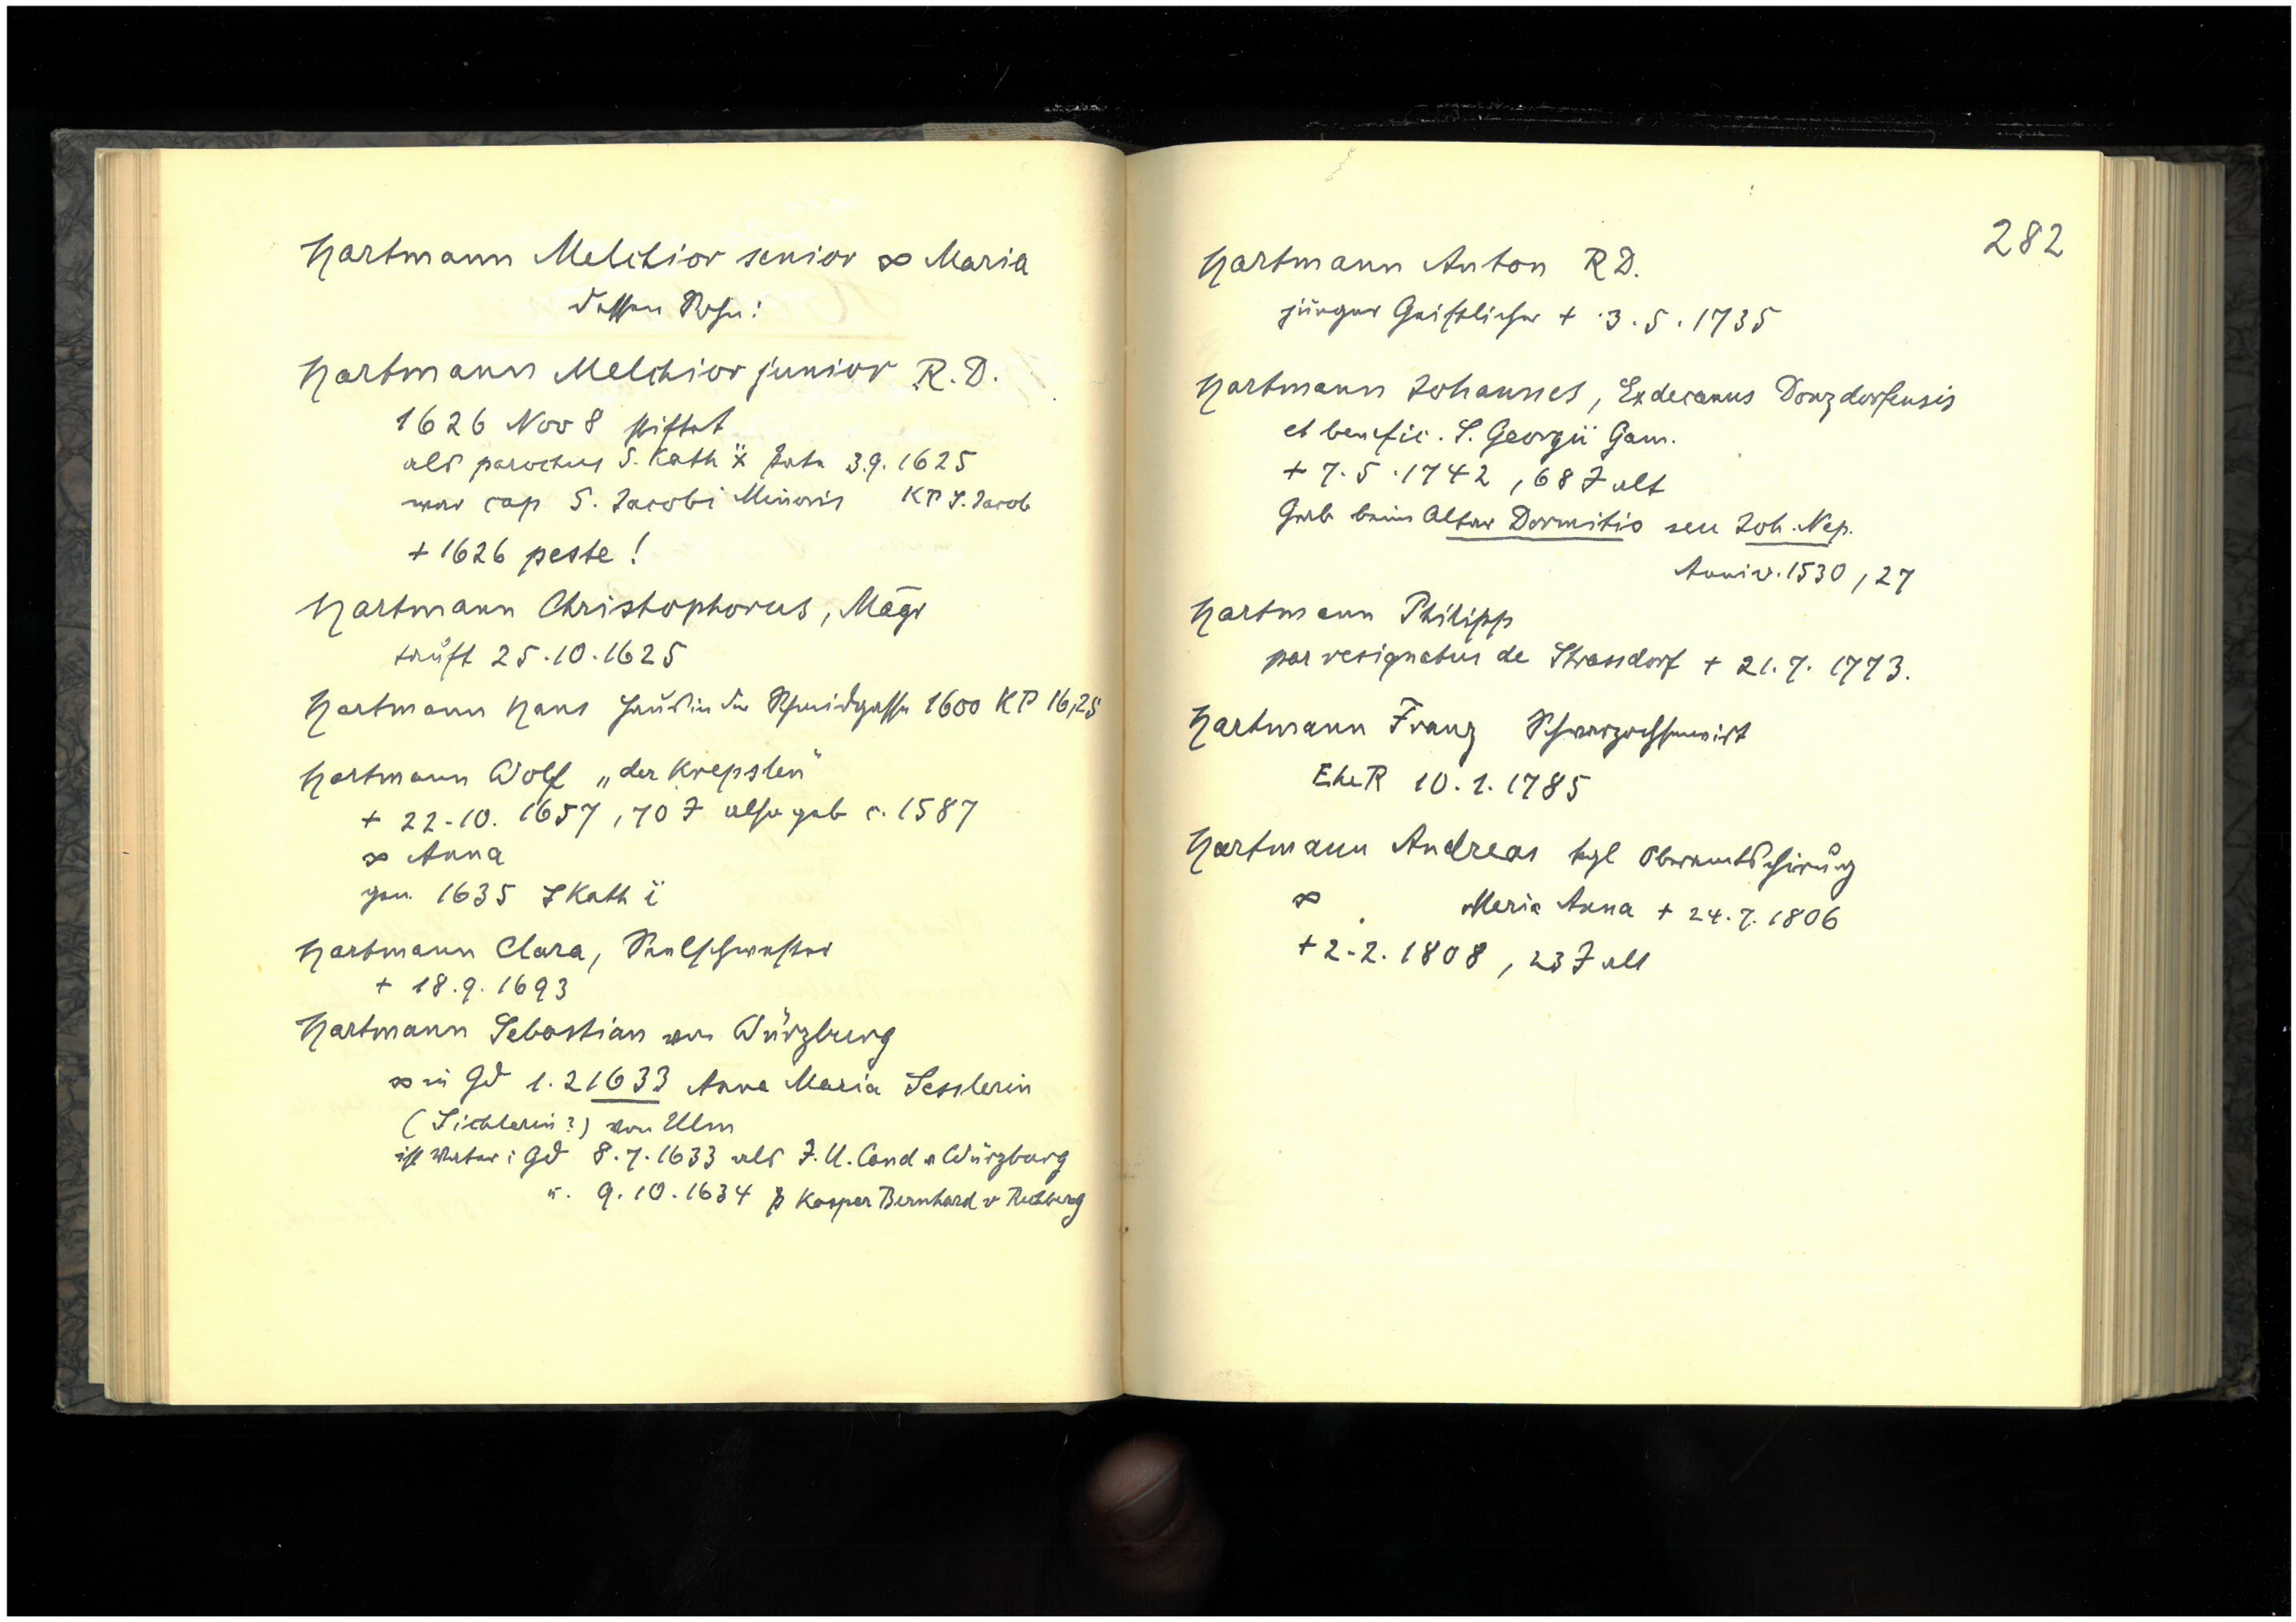 Hartmann Melchior senior ∞ Maria
dessen Sohn:
Hartmann Melchior junior R.D.
1626 Nov 8 stiftet
als parochus S. Kath 3.9.1625
war cap S. Jacobi Minoris KP S. Jacob
+ 1626 peste!
Hartmann Christophorus, Māgr
tauft 25.10.1625
Hartmann Hans Haus in der Schmidgasse 1600 KP 16,25
Hartmann Wolf „der Krepslen"
+ 22.10. 1657, 70 J also geb c. 1587
∞ Anna
gen. 1635 S Kath
Hartmann Clara, Seelschwester
+ 18.9.1693
Hartmann Sebastian von Würzburg
∞ in Gd 1.2 1633 Anna Maria Sesslerin
(Sichlerin?) von Ulm
ist Vater i Gd 8.7.1633 als J.U. Cand v Würzburg
u. 9.10.1634 p Kaspar Bernhard v Rechberg
282
Hartmann Anton R D.
junger Geistlicher + 3.5.1735
Hartmann Johannes, Exdecanus Donzdorfensis
et benefic. S. Georgii Gam.
+ 7.5.1742, 68 J alt
Grab beim Altar Dormitio seu Joh. Nep.
Anniv. 1530, 27
Hartmann Philipp
par resignatus de Strassdorf + 21.7.1773.
Hartmann Franz Schwarzochsenwirt
EheR 10.1.1785
Hartmann Andreas kgl Oberamtschirurg
∞ Maria Anna + 24.7.1806
+ 2.2.1808, 23 J alt